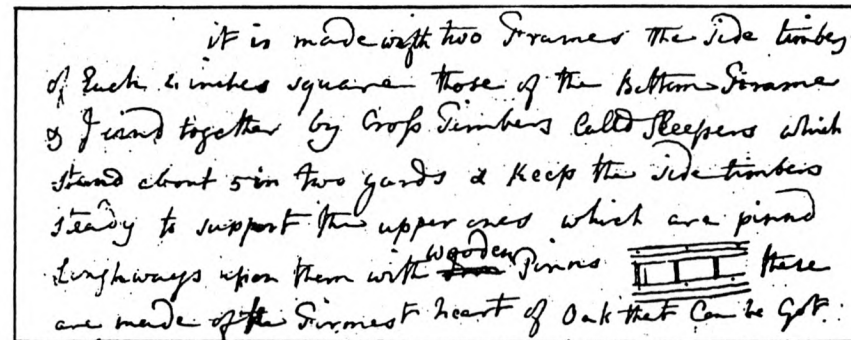 it is made with two Frames the side timbers
of Each 4 inches square those of the Bottom Frame
is Joind together by Cross Timbers Calld Sleepers which
stand about 5 in two yards & keep the side timbers
steady to support the upper ones which are pinnd
Lenghways upon them with wooden Pinns these
are made of the Firmest heart of Oak that Can be Got.